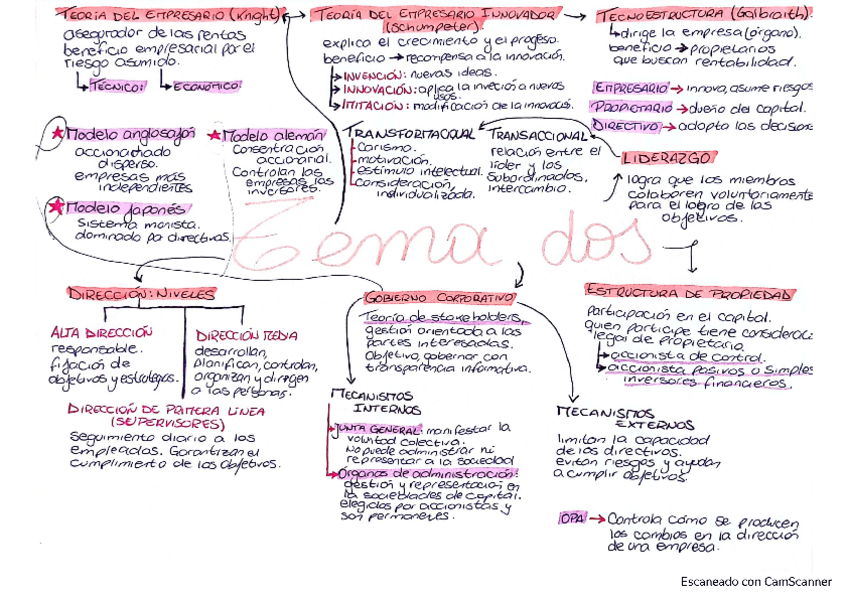 TEORÍA DEL EMPRESARIO (Knight)
asegurador de las rentas
beneficio empresarial por el
riesgo asumido.
TÉCNICO:
ECONÓMICO:
TEORÍA DEL EMPRESARIO INNOVADOR
(Schumpeter)
explica el crecimiento y el progreso.
beneficio → recompensa a la innovación.
INVENCIÓN: nuevas ideas.
INNOVACIÓN: aplica la inveción a nuevos
usos.
IMITACIÓN: modificación de la innovación.
TECNOESTRUCTURA (Galbraith):
dirige la empresa (órgano).
beneficio → propietarios
que buscan rentabilidad.
EMPRESARIO → innova, asume riesgos
PROPIETARIO → dueño del capital.
DIRECTIVO → adopta las decisione
Modelo anglosajón
accionariado
disperso.
empresas más
independientes
Modelo alemán
Concentración
accionarial.
Controlan las
empresas los
inversores.
Modelo Japonés
Sistema monista.
dominado por directivas.
TRANSFORMACIONAL
carisma.
motivación.
estímulo intelectual.
consideración
individualizada.
TRANSACCIONAL
relación entre el
líder y los
subordinados,
intercambio.
LIDERAZGO
logra que los miembros
colaboren voluntariamente
para el logro de los
objetivos.
Tema dos
DIRECCIÓN: NIVELES
ALTA DIRECCIÓN
responsable.
fijación de
objetivos y estrategias.
DIRECCIÓN MEDIA
desarrollan,
planifican, controlan,
organizan y dirigen
a las personas.
DIRECCIÓN DE PRIMERA LÍNEA
(SUPERVISORES)
Seguimiento diario a los
empleados. Garantizan el
cumplimiento de los objetivos.
GOBIERNO CORPORATIVO
Teoría de stakeholders,
gestión orientada a las
partes interesadas.
Objetivo, gobernar con
transparencia informativa.
MECANISMOS
INTERNOS
JUNTA GENERAL: manifestar la
voluntad colectiva.
No puede administrar ni
representar a la sociedad
Órganos de administración:
gestión y representación en
la sociedades de capital.
elegidos por accionistas y
son permanentes.
ESTRUCTURA DE PROPIEDAD
participación en el capital.
quien participe tiene considerac
legal de propietario.
accionista de control.
accionista pasivos o simples
inversores financieros.
MECANISMOS
EXTERNOS
limitan la capacidad
de los directivos.
evitan riesgos y ayudan
a cumplir objetivos.
OPA → Controla cómo se producen
los cambios en la dirección
de una empresa.
Escaneado con CamScanner